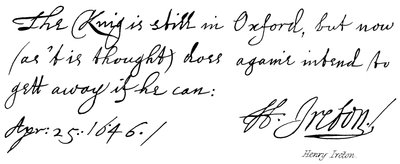 The King is still in Oxford, but now
(as 't is thought) does againe intend to
gett away if he can:
Apr: 25. 1646. /
H. Ireton /
Henry Ireton